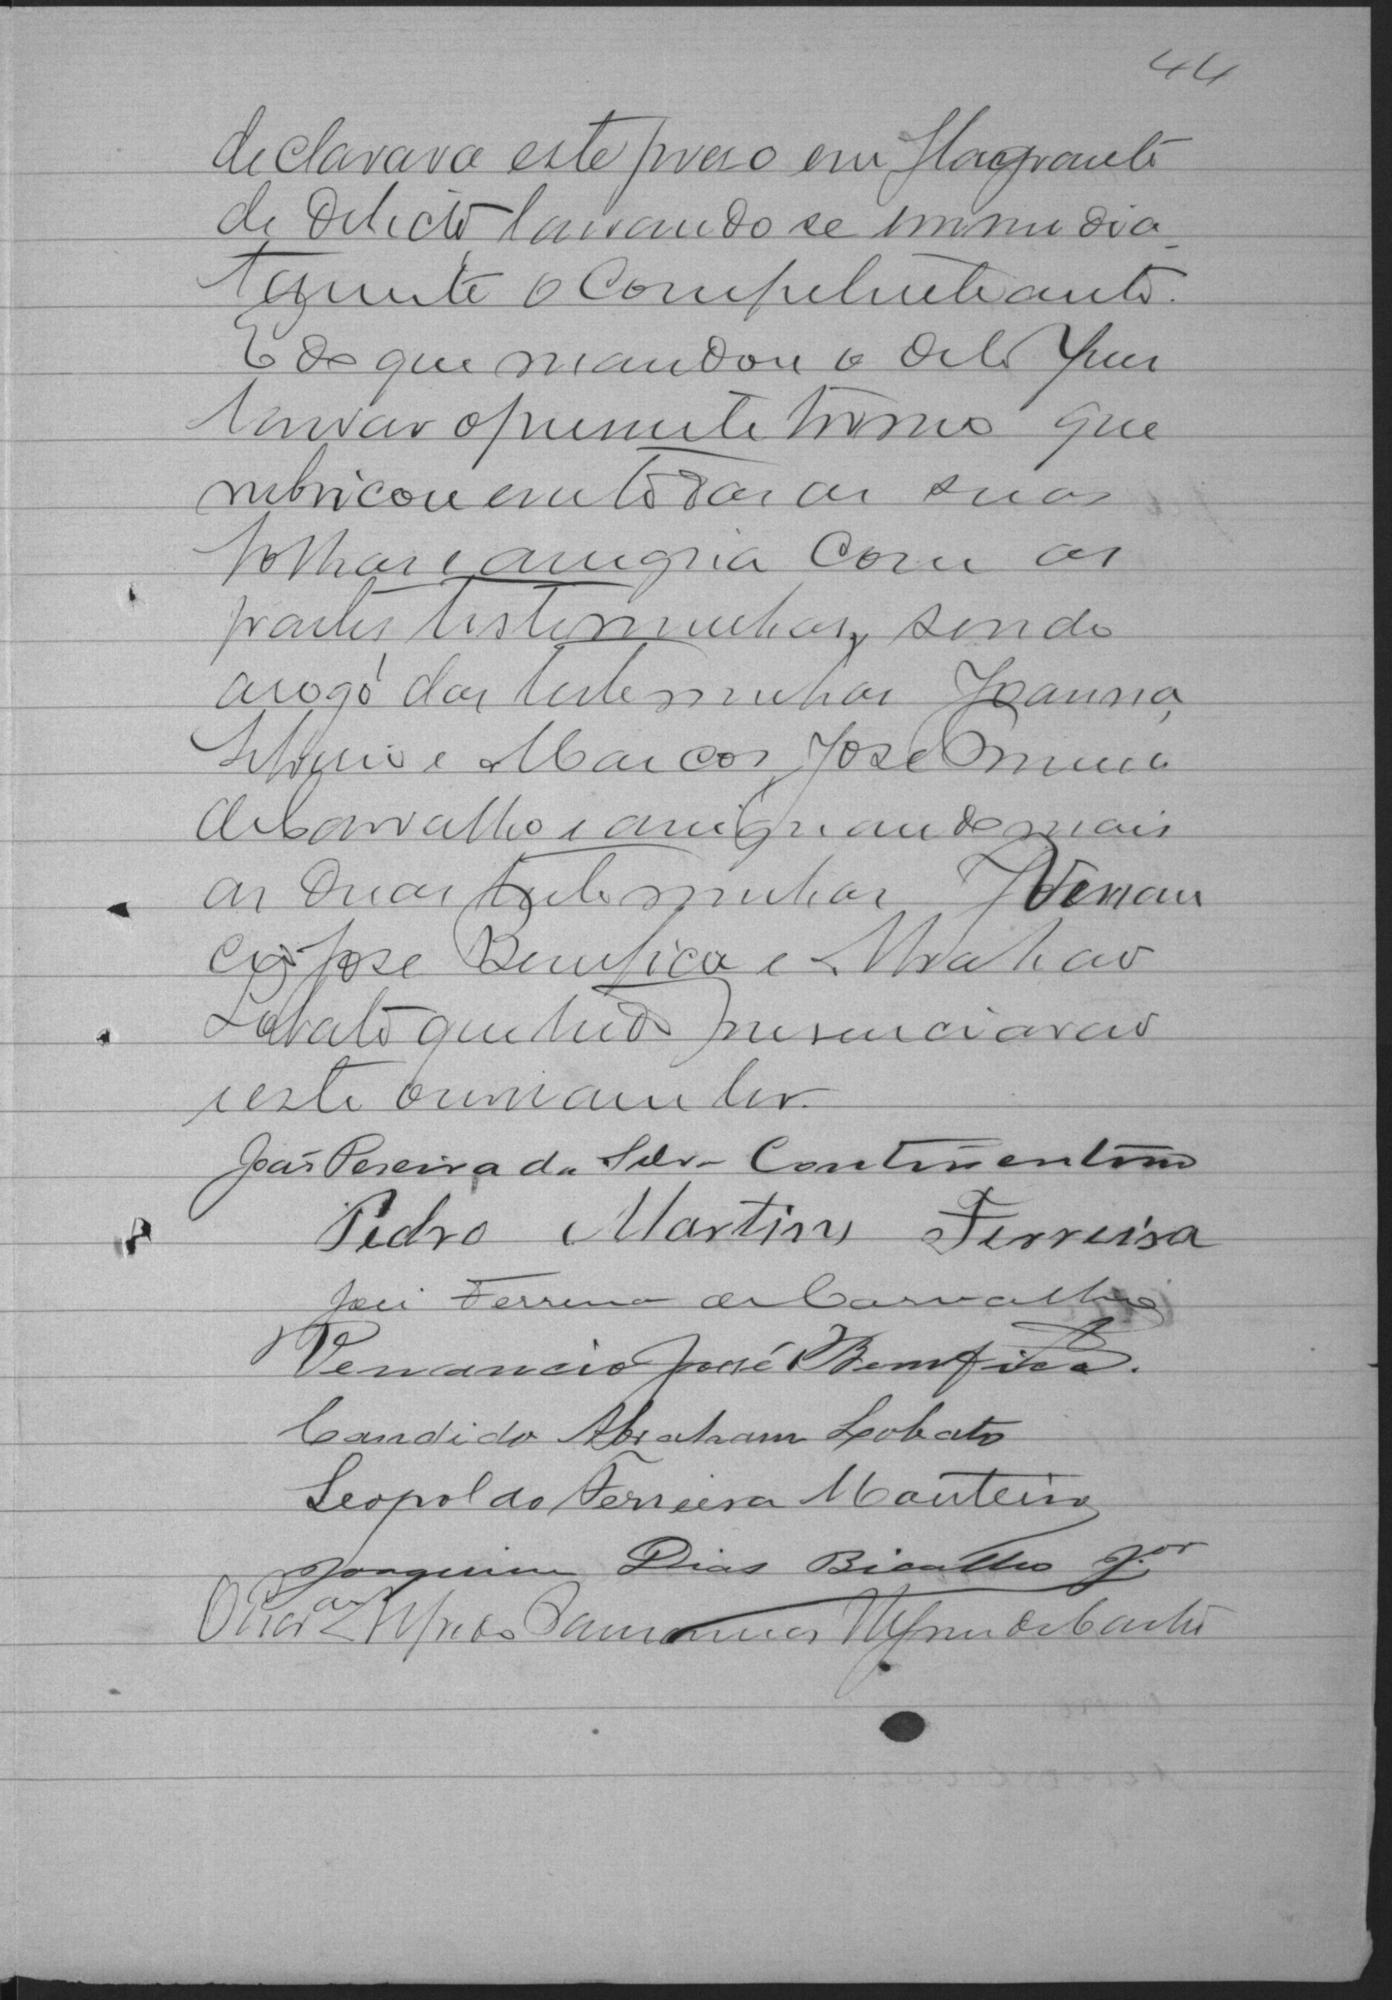 44
declarava este preso em flagrante
de delicto lavrando se immedia
tamente o competente auto.
E do que mandou o dito Juiz
lavrar o presente termo que
rubricou em todas as suas
folhas e assigna com as
partes, testemunhas, sendo
a rogo das testemunhas Joanna,
Silverio e Marcos, José Ferreira
de Carvalho e assignando mais
as duas testemunhas Venan
cio José Bemfica e Abrahão
Lobato que tudo presenciarão
e este ouvirão ler.
João Pereira da Silva Continentino
Pedro Martins Ferreira
José Ferreira de Carvalho
Venancio José Bemfica.
Candido Abraham Lobato
Leopoldo Ferreira Monteiro
Joaquim Dias Bicalho J.or
Alfredo de Castro